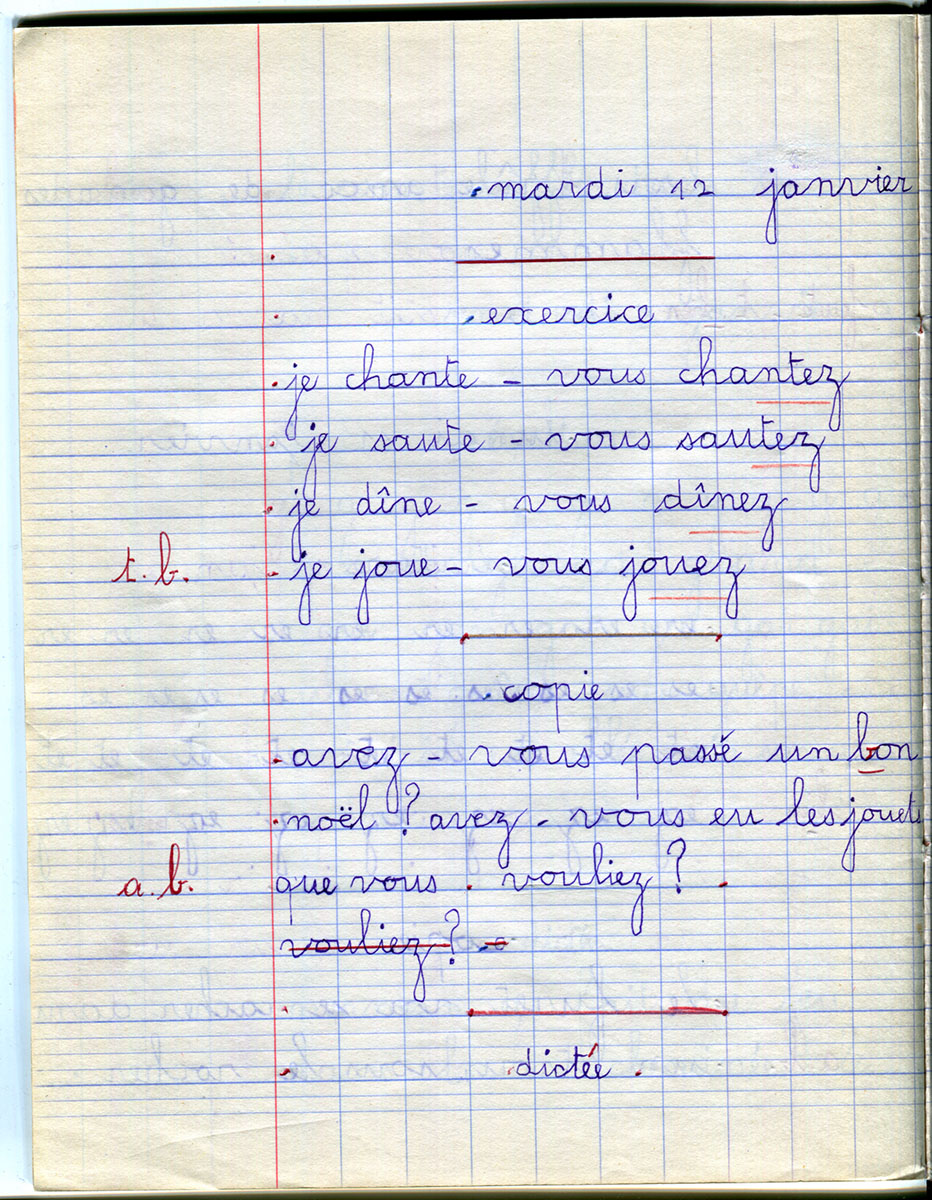 mardi 12 janvier
exercice
je chante - vous chantez
je saute - vous sautez
je dîne - vous dînez
t.b. je joue - vous jouez
copie
avez - vous passé un bon
noël ? avez - vous eu les jouets
a.b. que vous vouliez ?
vouliez ?
dictée